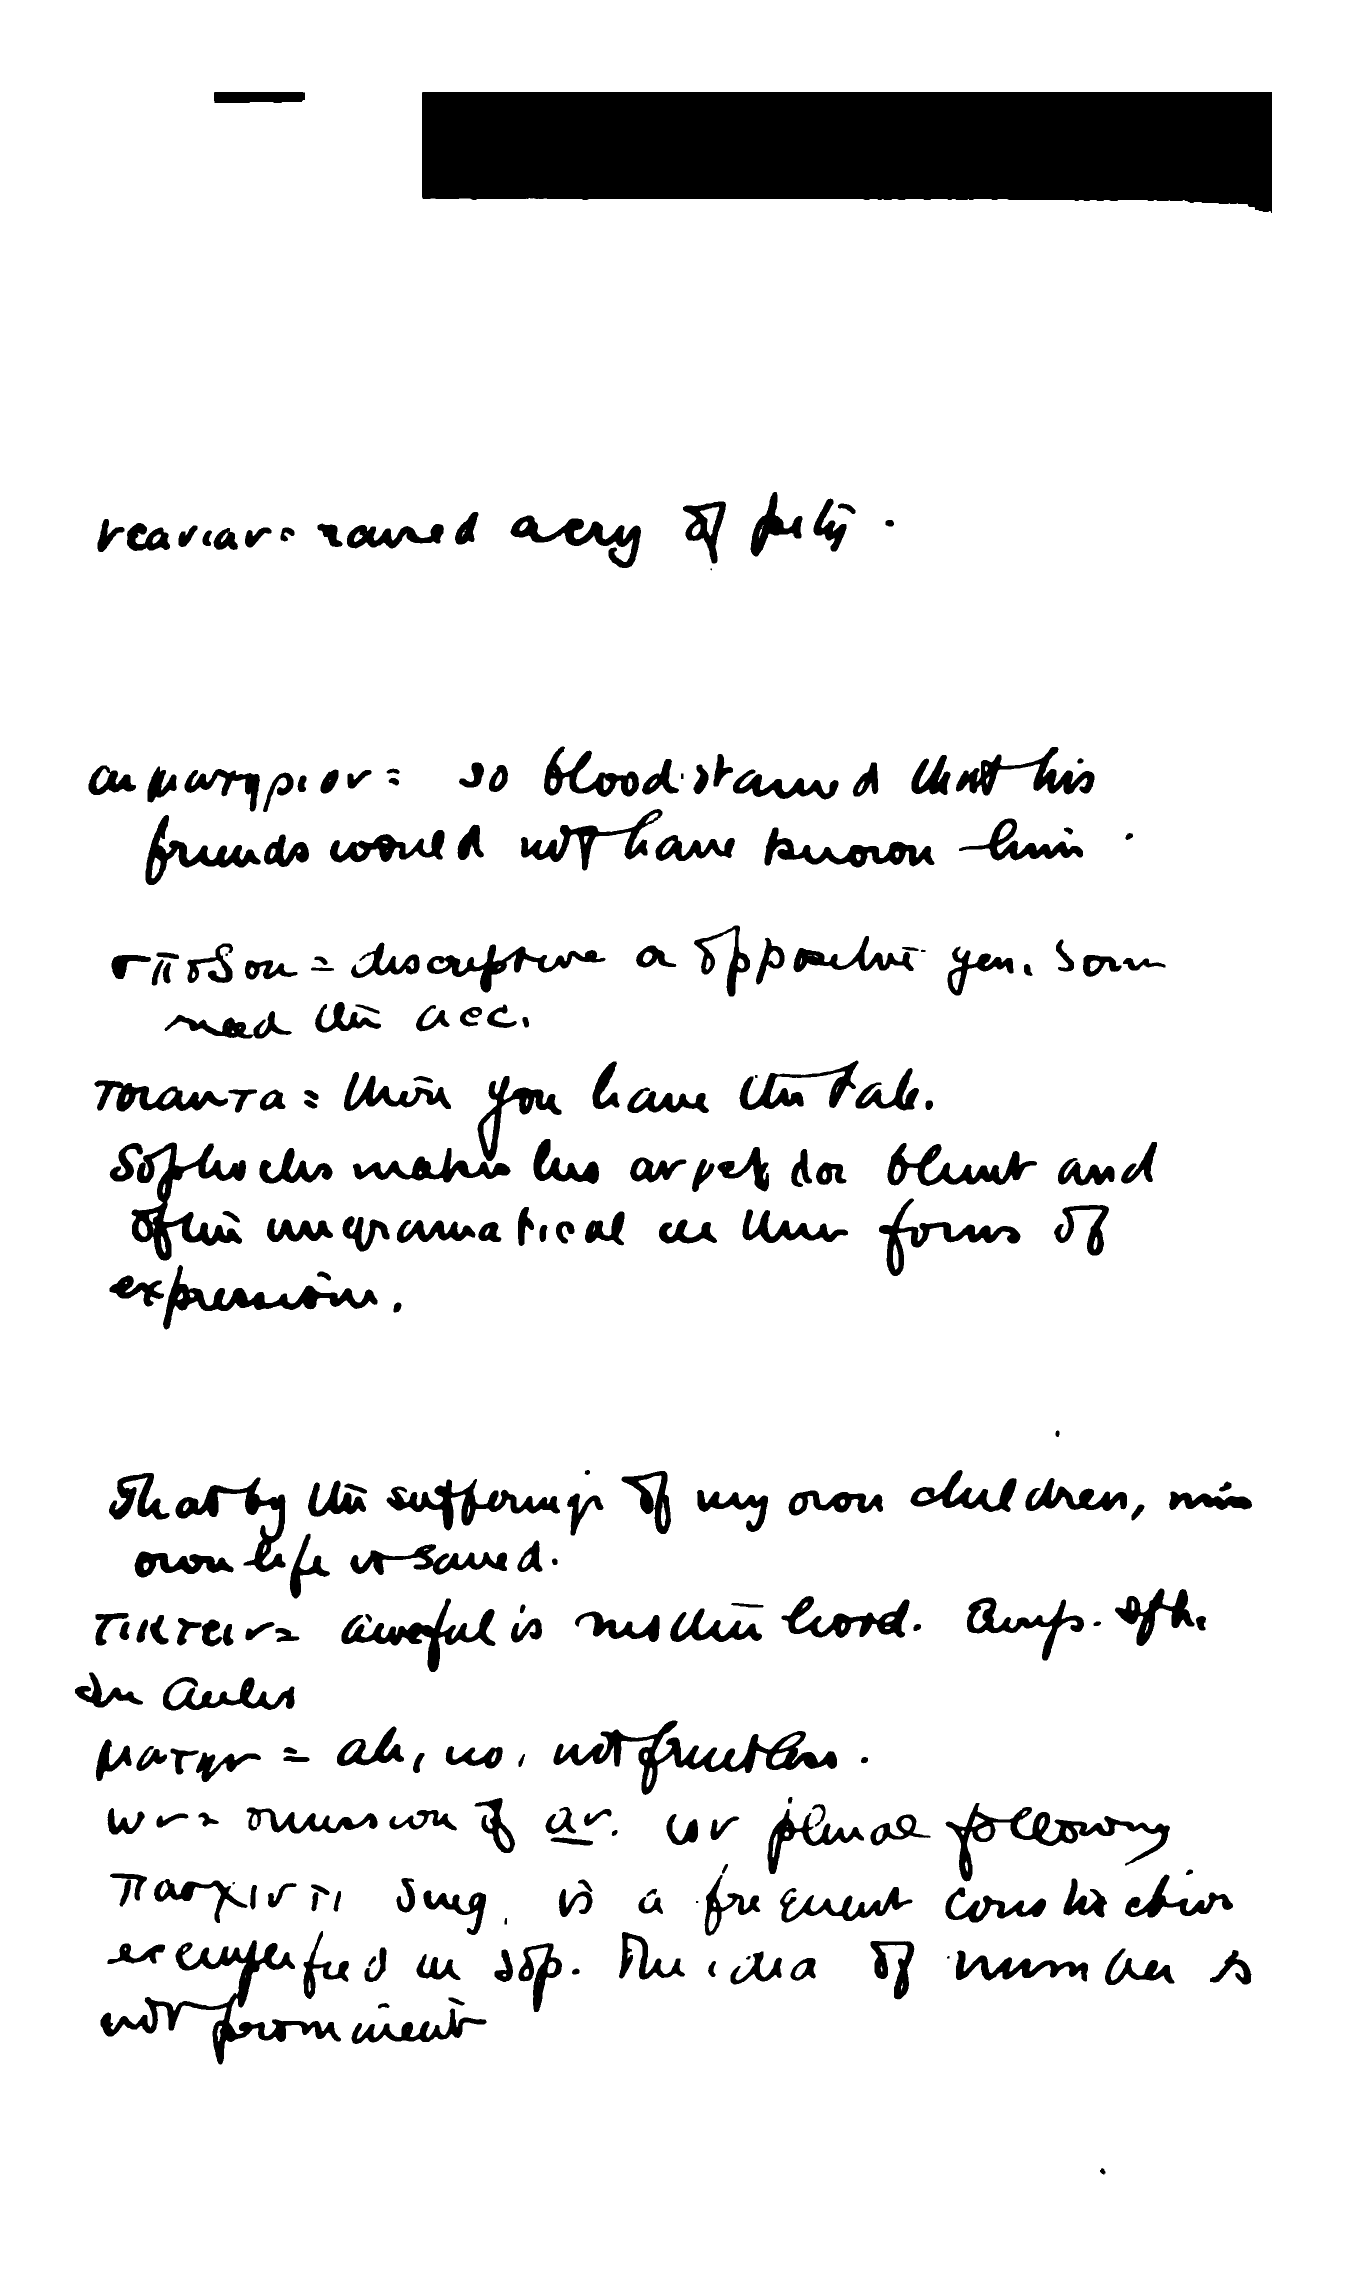 = raised a cry of pity.
αιματηριον = so blood-stained that his
friends would not have known him.
σποδου = descriptive or appositive gen. Some
need the acc.
τοιαυτα = there you have the tale.
Sophocles makes his αγγελοι blunt and
often ungramatical in their forms of
expression.
That by the sufferings of my own children, mine
own life is saved.
τικτειν = aweful is mother hood. Comp. Iph.
In Aulis
ματην = ah, no, not fruitless.
ων = omission of αν. ων plural following
πασχοντι sing. is a frequent construction
exemplified in Sop. The idea of number is
not prominent